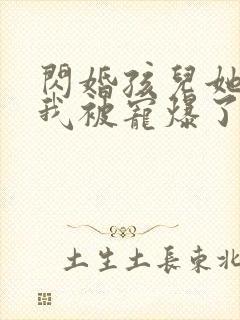 閃婚孩兒她
我被寵爆了
土生土長東北